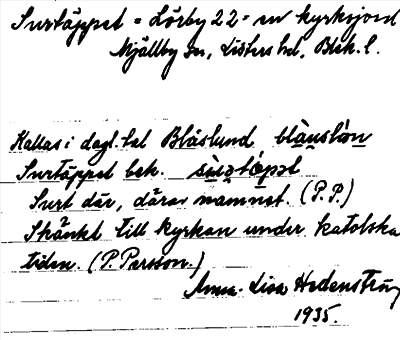 Surtäppet = Lörby 22 = en kyrkojord
Mjällby sn, Listers hd, Blek. l.
Kallas i dagl. tal Blåslund blàuslón
Surtäppet bek.
Surt där, därav namnet. (P.P.)
Skänkt till kyrkan under katolska
tiden. (P. Persson.)
Anna-Lisa Hedenström
1935.